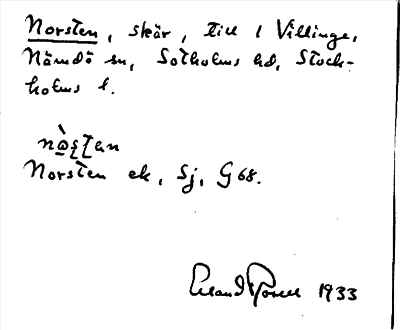 Norsten, skär, till 1 Villinge,
Nämdö sn, Sotholms hd, Stock-
holms l.
nòs̩t̩an
Norsten ek, Sj, G 68.
Erland Rosell 1933